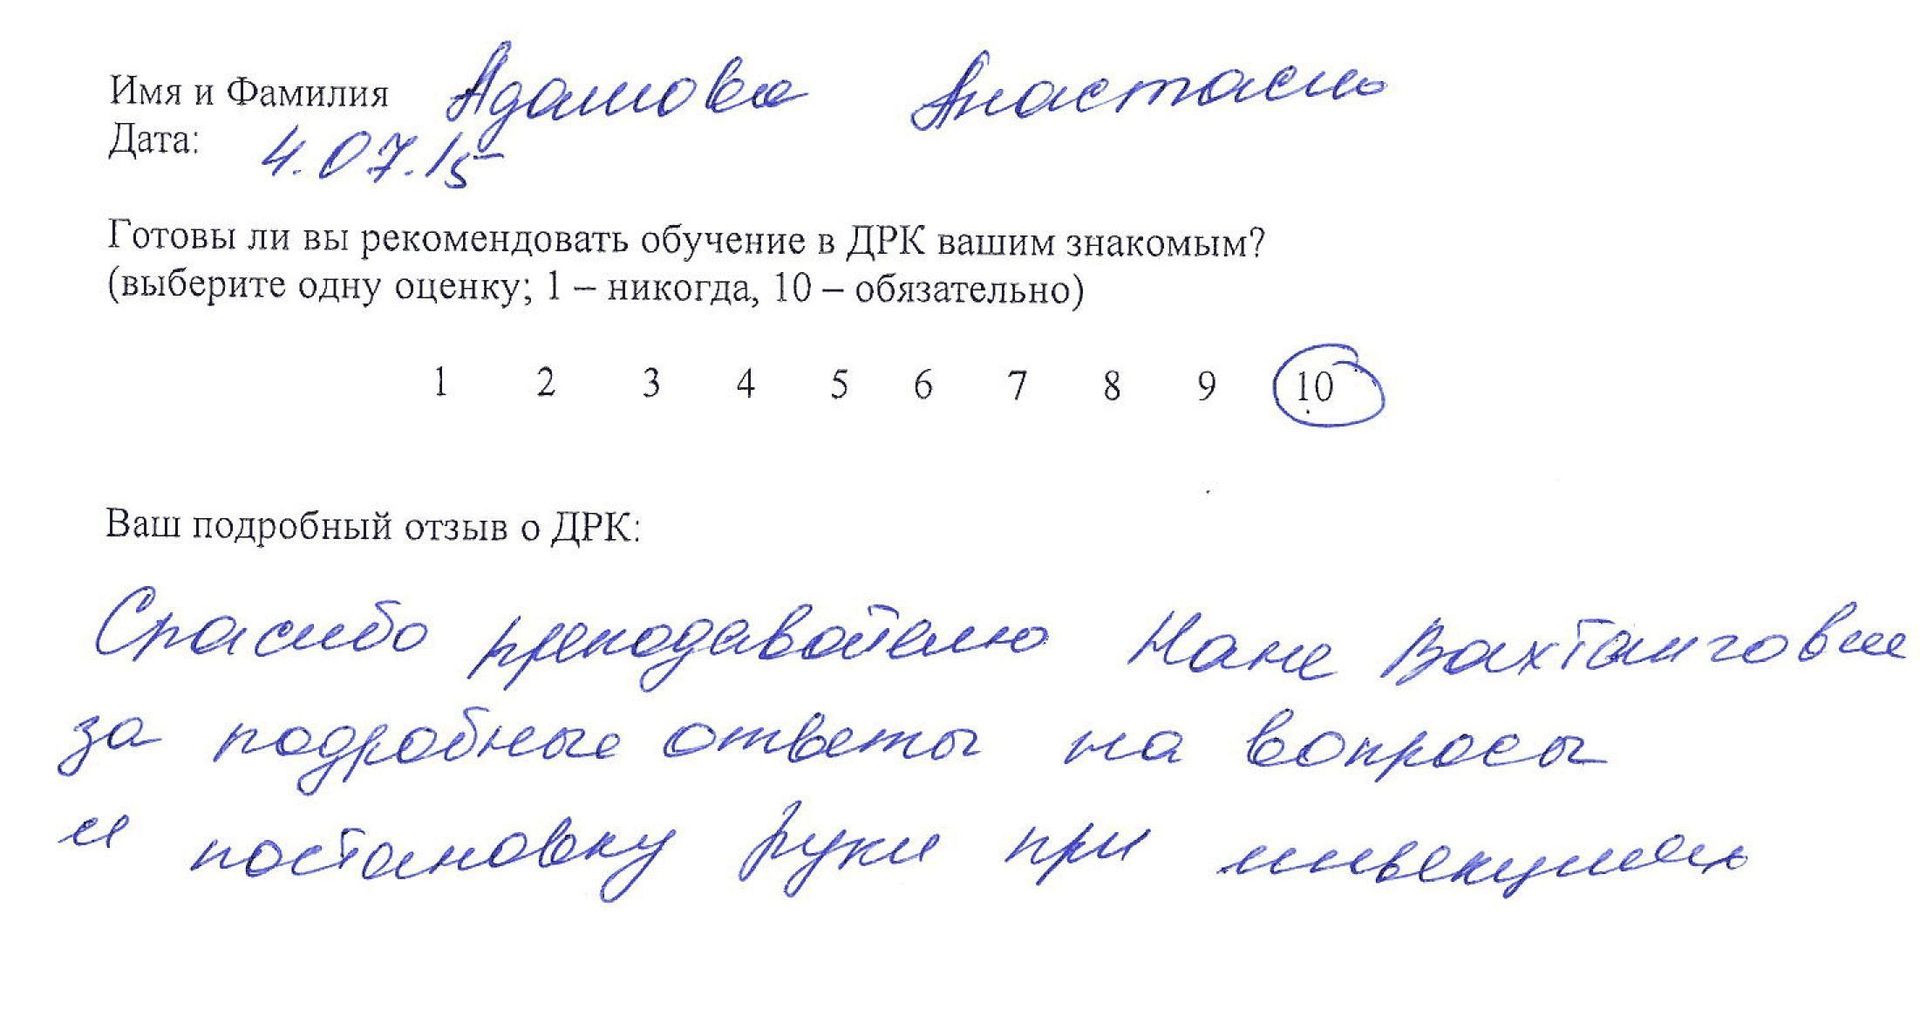 Имя и Фамилия Адамова Анастасия
Дата: 4.07.15
Готовы ли вы рекомендовать обучение в ДРК вашим знакомым?
(выберите одну оценку; 1 – никогда, 10 – обязательно)
1 2 3 4 5 6 7 8 9 10
Ваш подробный отзыв о ДРК:
Спасибо преподавателю Нане Вахтанговне
за подробные ответы на вопросы
и постановку руки при инъекциях